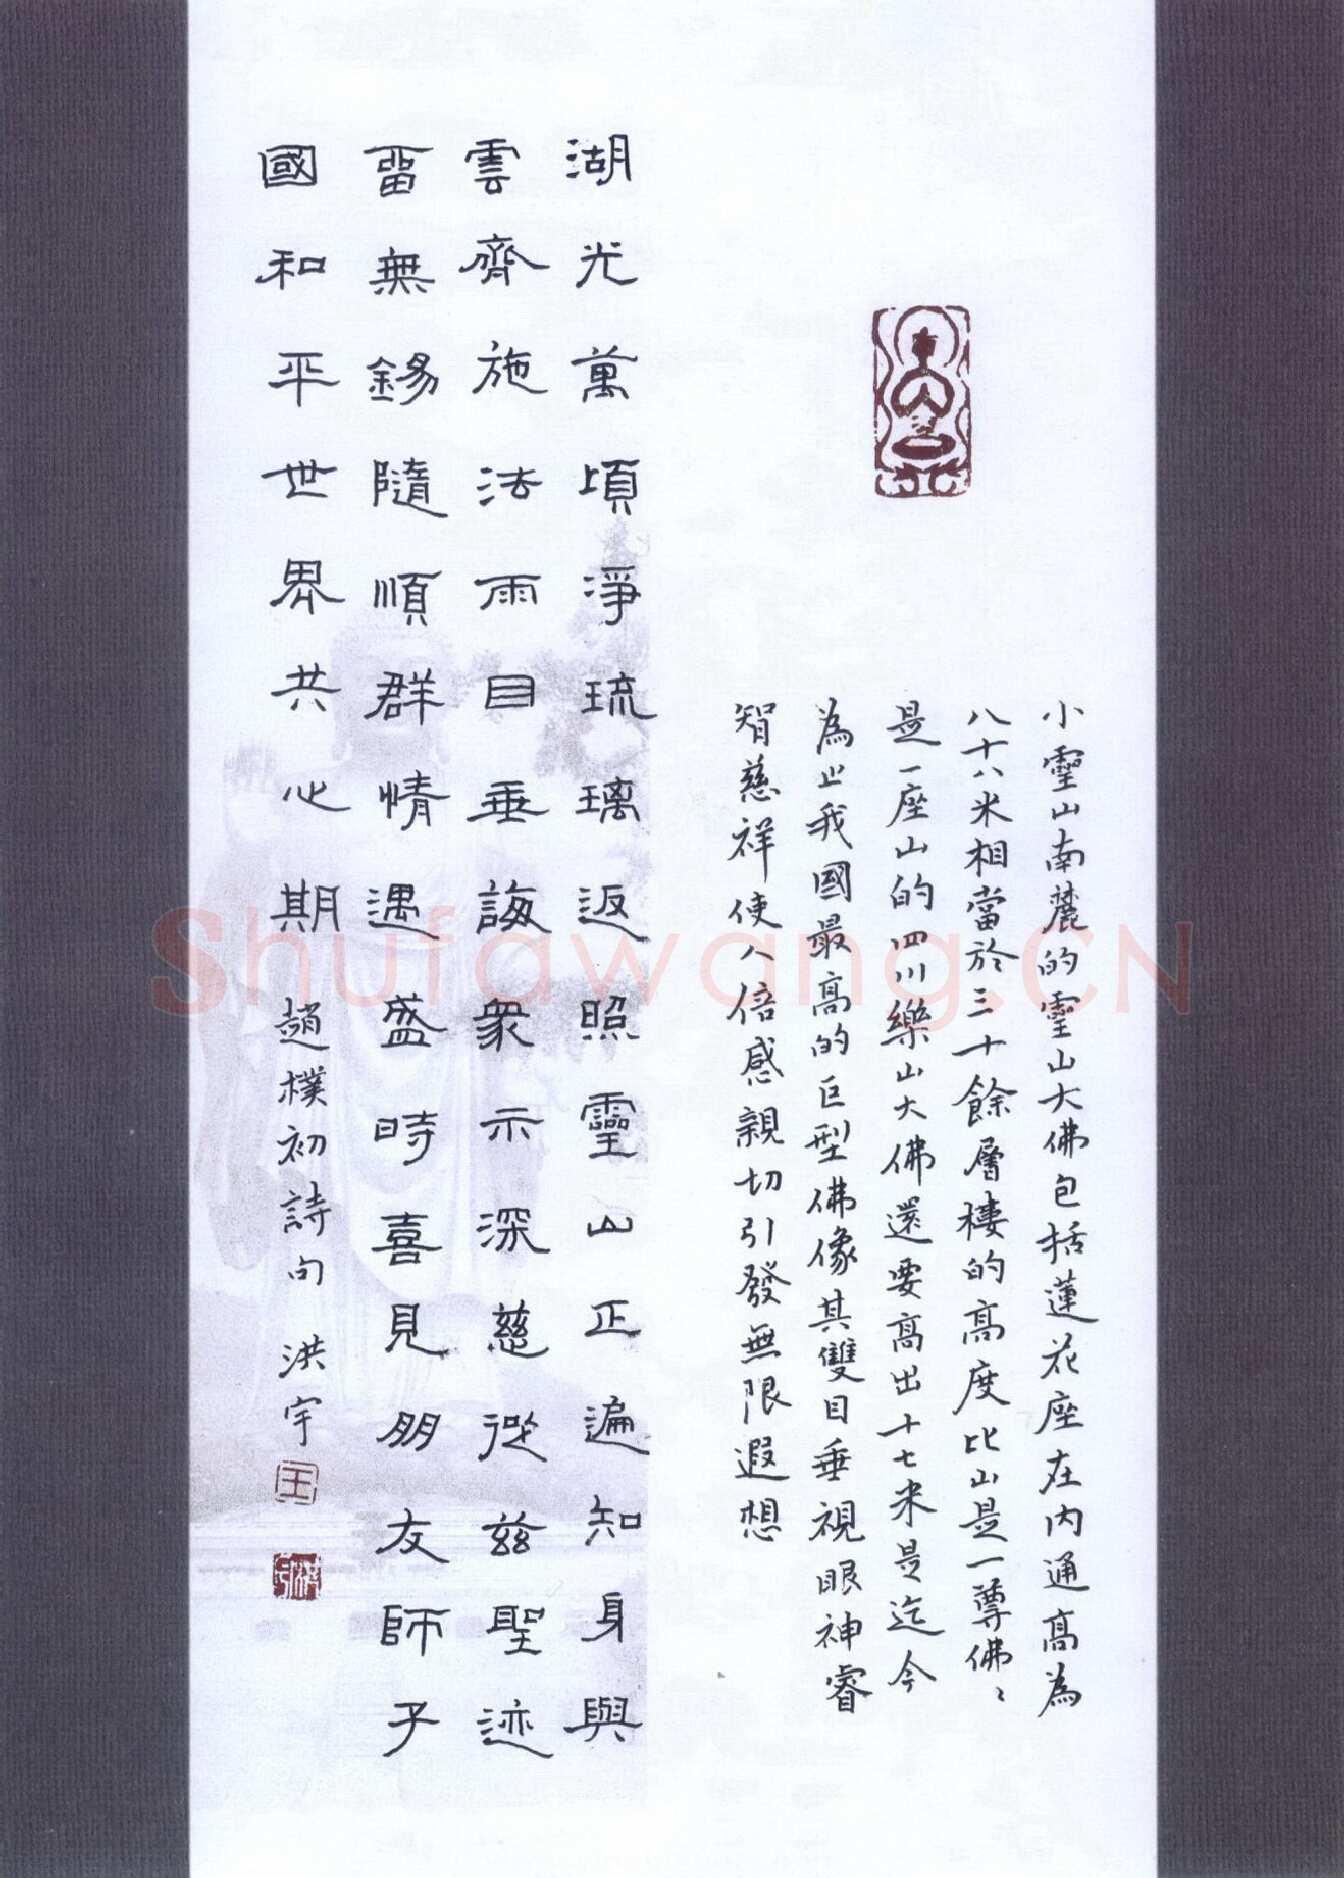 小靈山南麓的靈山大佛包括蓮花座在內通高為
八十八米相當於三十餘層樓的高度比山是一尊佛〻
是一座山的四川樂山大佛還要高出十七米是迄今
為止我國最高的巨型佛像其雙目垂視眼神睿
智慈祥使人倍感親切引發無限遐想
湖光萬頃淨琉璃返照靈山正遍知身與
雲齊施法雨目垂誨衆示深慈從茲聖迹
留無錫隨順群情遇盛時喜見朋友師子
國和平世界共心期 趙樸初詩句 洪宇
王
Shufawang.CN